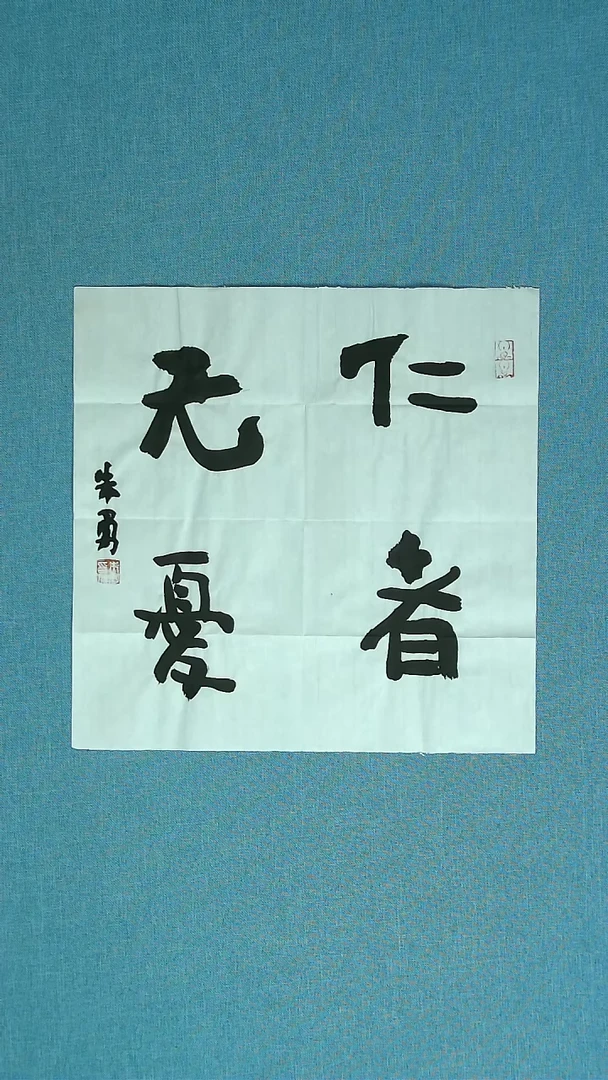 仁者
无憂
朱勇